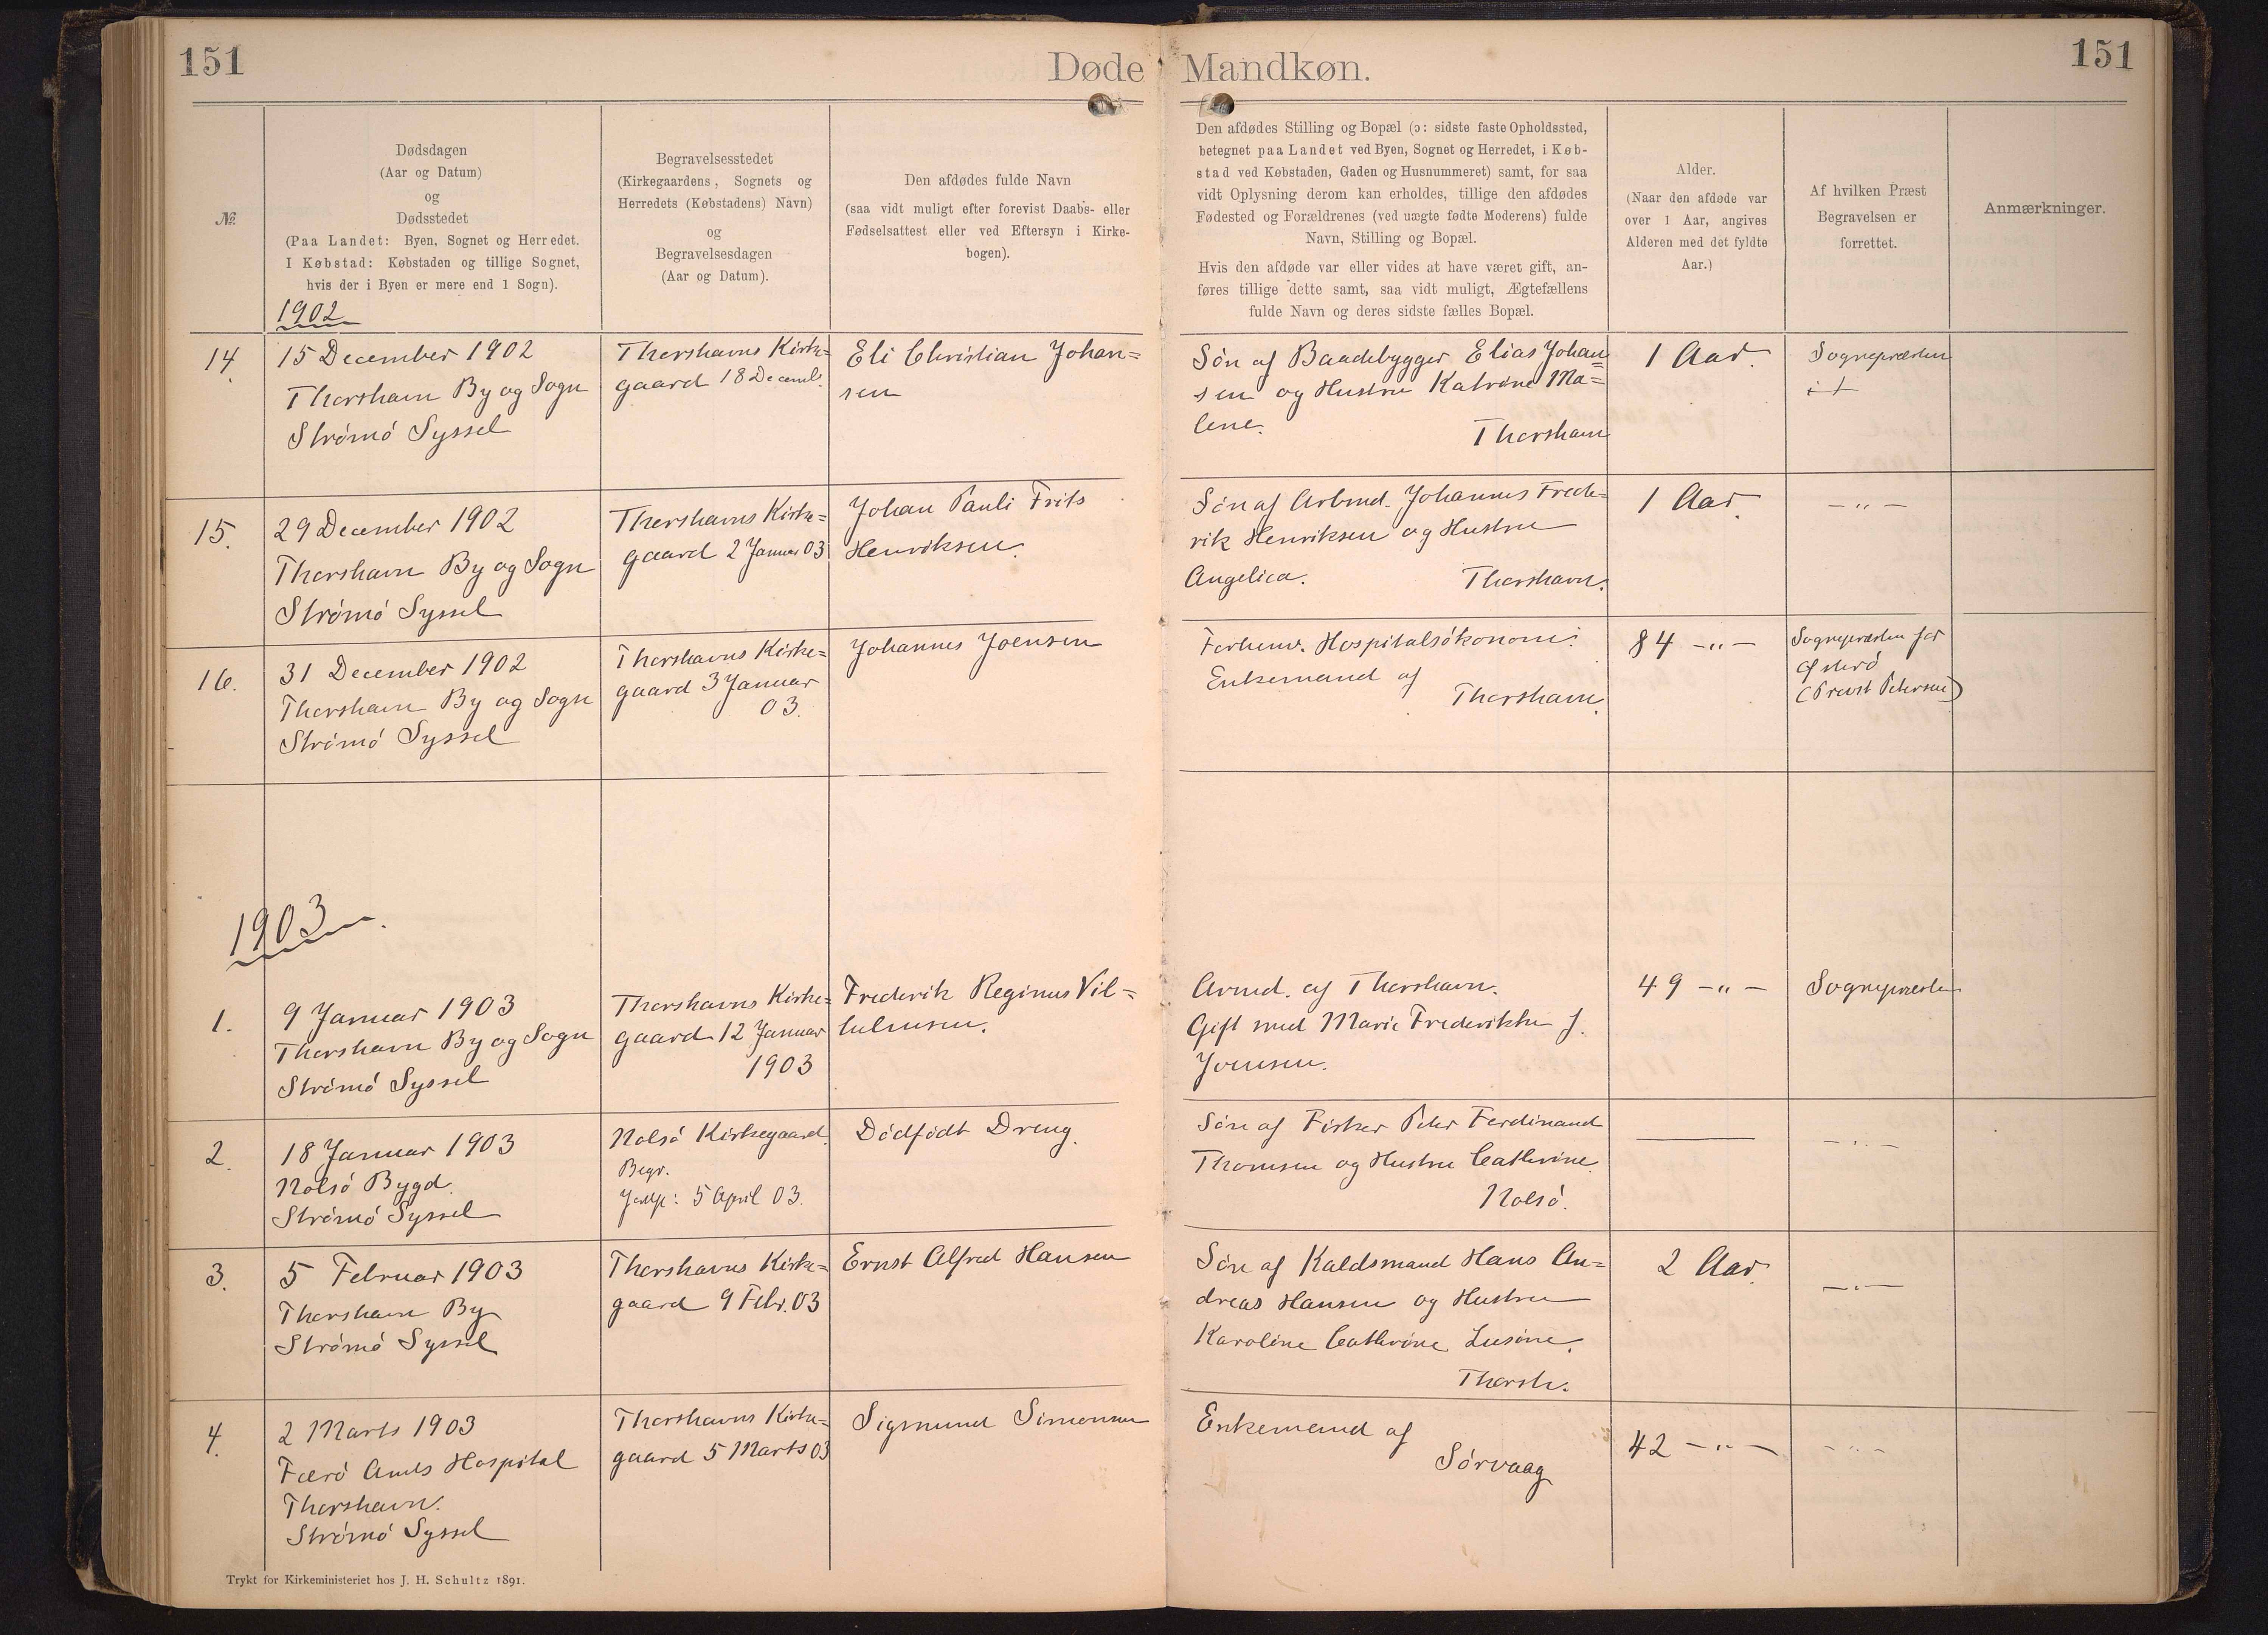 151
Døde Mandkøn.
151
№
Dødsdagen
(Aar og Datum)
og
Dødsstedet
(Paa Landet: Byen, Sognet og Herredet.
I Købstad: Købstaden og tillige Sognet,
hvis der i Byen er mere end 1 Sogn).
Begravelsesstedet
(Kirkegaardens, Sognets og
Herredets (Købstadens) Navn)
og
Begravelsesdagen
(Aar og Datum).
Den afdødes fulde Navn
(saa vidt muligt efter forevist Daabs- eller
Fødselsattest eller ved Eftersyn i Kirke-
bogen).
Den afdødes Stilling og Bopæl (ɔ: sidste faste Opholdssted,
betegnet paa Landet ved Byen, Sognet og Herredet, i Køb-
stad ved Købstaden, Gaden og Husnummeret) samt, for saa
vidt Oplysning derom kan erholdes, tillige den afdødes
Fødested og Forældrenes (ved uægte fødte Moderens) fulde
Navn, Stilling og Bopæl.
Hvis den afdøde var eller vides at have været gift, an-
føres tillige dette samt, saa vidt muligt, Ægtefællens
fulde Navn og deres sidste fælles Bopæl.
Alder.
(Naar den afdøde var
over 1 Aar, angives
Alderen med det fyldte
Aar.)
Af hvilken Præst
Begravelsen er
forrettet.
Anmærkninger.
1902
14.
15 December 1902
Thorshavn By og Sogn
Strømø Syssel
Thorshavns Kirke=
gaard 18 Decemb.
Eli Christian Johan=
sen
Søn af Baadebygger Elias Johan=
sen og Hustru Katrine Ma=
lene.
Thorshavn
1 Aar.
Sognepræsten
15.
29 December 1902
Thorshavn By og Sogn
Strømø Syssel
Thorshavns Kirke=
gaard 2 Januar 03
Johan Pauli Frits
Henriksen.
Søn af Arbmd. Johannes Frede=
rik Henriksen og Hustru
Angelica.
Thorshavn.
1 Aar.
— " —
16.
31 December 1902
Thorshavn By og Sogn
Strømø Syssel
Thorshavns Kirke=
gaard 3 Januar
03.
Johannes Joensen
Forhenv. Hospitalsøkonom.
Enkemand af
Thorshavn.
84 — " —
Sognepræsten for
Østerø
(Provst Petersen)
1903.
1.
9 Januar 1903
Thorshavn By og Sogn
Strømø Syssel
Thorshavns Kirke=
gaard 12 Januar
1903
Frederik Reginus Vil=
helmsen.
Armd. af Thorshavn.
Gift med Marie Frederikke f.
Joensen.
49 — " —
Sognepræsten
2.
18 Januar 1903
Nolsø Bygd.
Strømø Syssel
Nolsø Kirkegaard.
Begr.
5 April 03.
Dødfødt Dreng.
Søn af Fisker Peter Ferdinand
Thomsen og Hustru Cathrine.
Nolsø.
—
— " —
3.
5 Februar 1903
Thorshavn By
Strømø Syssel
Thorshavns Kirke=
gaard 9 Febr. 03
Ernst Alfred Hansen
Søn af Kaldsmand Hans An=
dreas Hansen og Hustru
Karoline Cathrine Lusine.
Thorsh.
2 Aar.
— " —
4.
2 Marts 1903
Færø Amts Hospital
Thorshavn.
Strømø Syssel
Thorshavns Kirke=
gaard 5 Marts 03
Sigmund Simonsen
Enkemand af
Sørvaag
42 — " —
— " —
Trykt for Kirkeministeriet hos J. H. Schultz 1891.